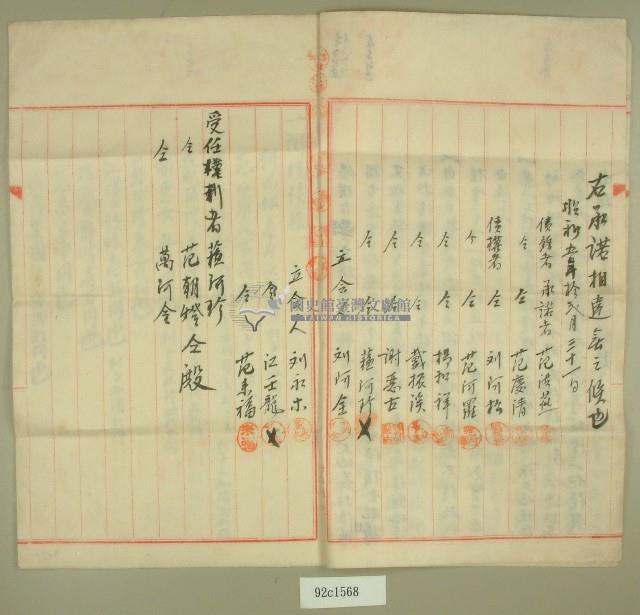 右承諾相違無之候也
昭和五年拾弍月三十一日
債務者 承諾者 范洪燕
仝 仝 范慶清
債權者 仝 刘阿松
仝 仝 范阿羅
仝 仝 楊和祥
仝 仝 戴振
仝 仝 謝
仝 仝 蘇阿珍
立会 刘阿金
立会人 刘水木
仝 江壬龍
仝 范来福
受任權利者 蘇阿珍
仝 范朝燈 仝殿
仝 萬阿全
國史館臺灣文獻館
TAIWAN HISTORICA
92c1568